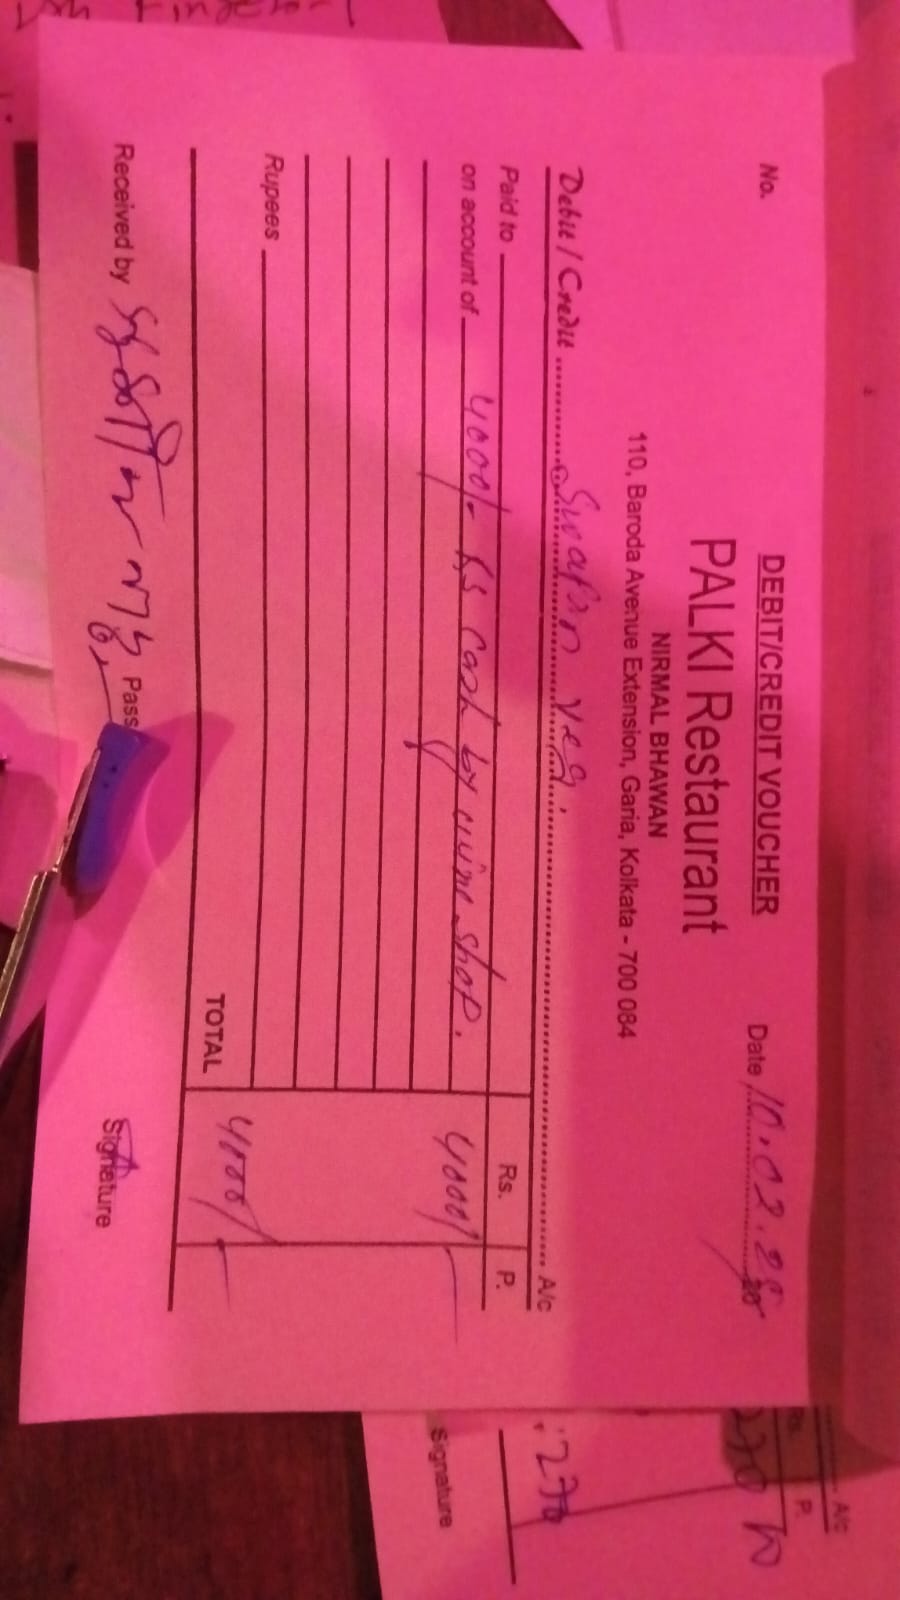 DEBIT/CREDIT VOUCHER
No.
Date 10.02.25
PALKI Restaurant
NIRMAL BHAWAN
110, Baroda Avenue Extension, Garia, Kolkata - 700 084
Debit / Credit Swapan A/c
Paid to Rs. P.
on account of 4000/- Rs cash by wine shop. 4000/-
Rupees
TOTAL 4000/-
Received by Pass Signature
270
Signature
A/c
Rs. P.